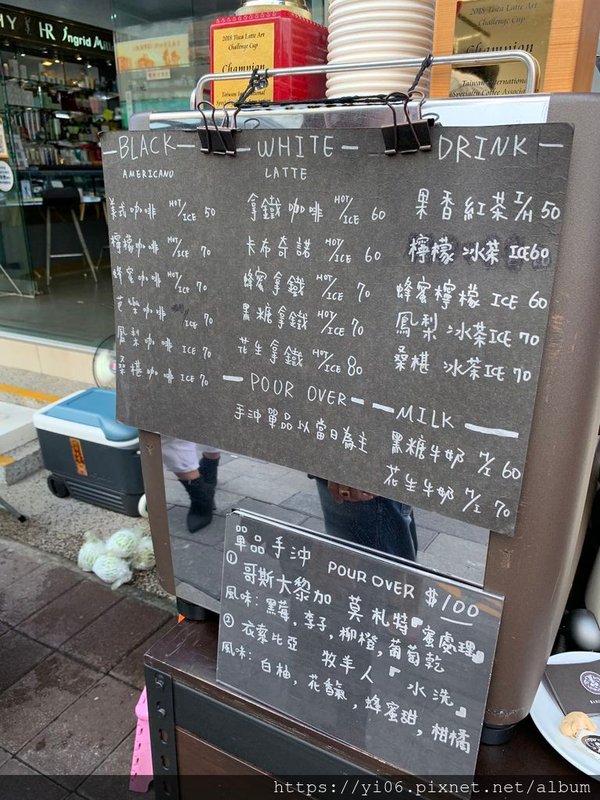 HR Ingrid Mil
2018 Tisca Latte Art
Challenge Cup
Champion
2018 Tisca Latte Art
Challenge Cup
Champion
Taiwan International
Specialty Coffee Association
—BLACK—
AMERICANO
美式咖啡 HOT/ICE 50
檸檬咖啡 HOT/ICE 70
蜂蜜咖啡 HOT/ICE 70
芭樂咖啡 ICE 70
鳳梨咖啡 ICE 70
桑椹咖啡 ICE 70
—WHITE—
LATTE
拿鐵咖啡 HOT/ICE 60
卡布奇諾 HOT/ICE 60
蜂蜜拿鐵 HOT/ICE 70
黑糖拿鐵 HOT/ICE 70
花生拿鐵 HOT/ICE 80
DRINK—
果香紅茶 I/H 50
檸檬冰茶 ICE 60
蜂蜜檸檬 ICE 60
鳳梨冰茶 ICE 70
桑椹冰茶 ICE 70
—POUR OVER—
手沖單品以當日為主
—MILK—
黑糖牛奶 H/I 60
花生牛奶 H/I 70
單品手沖 POUR OVER $100
① 哥斯大黎加 莫札特『蜜處理』
風味:黑莓,李子,柳橙,葡萄乾
② 衣索比亞 牧羊人『水洗』
風味:白柚,花香氣,蜂蜜甜,柑橘
https://yi06.pixnet.net/album